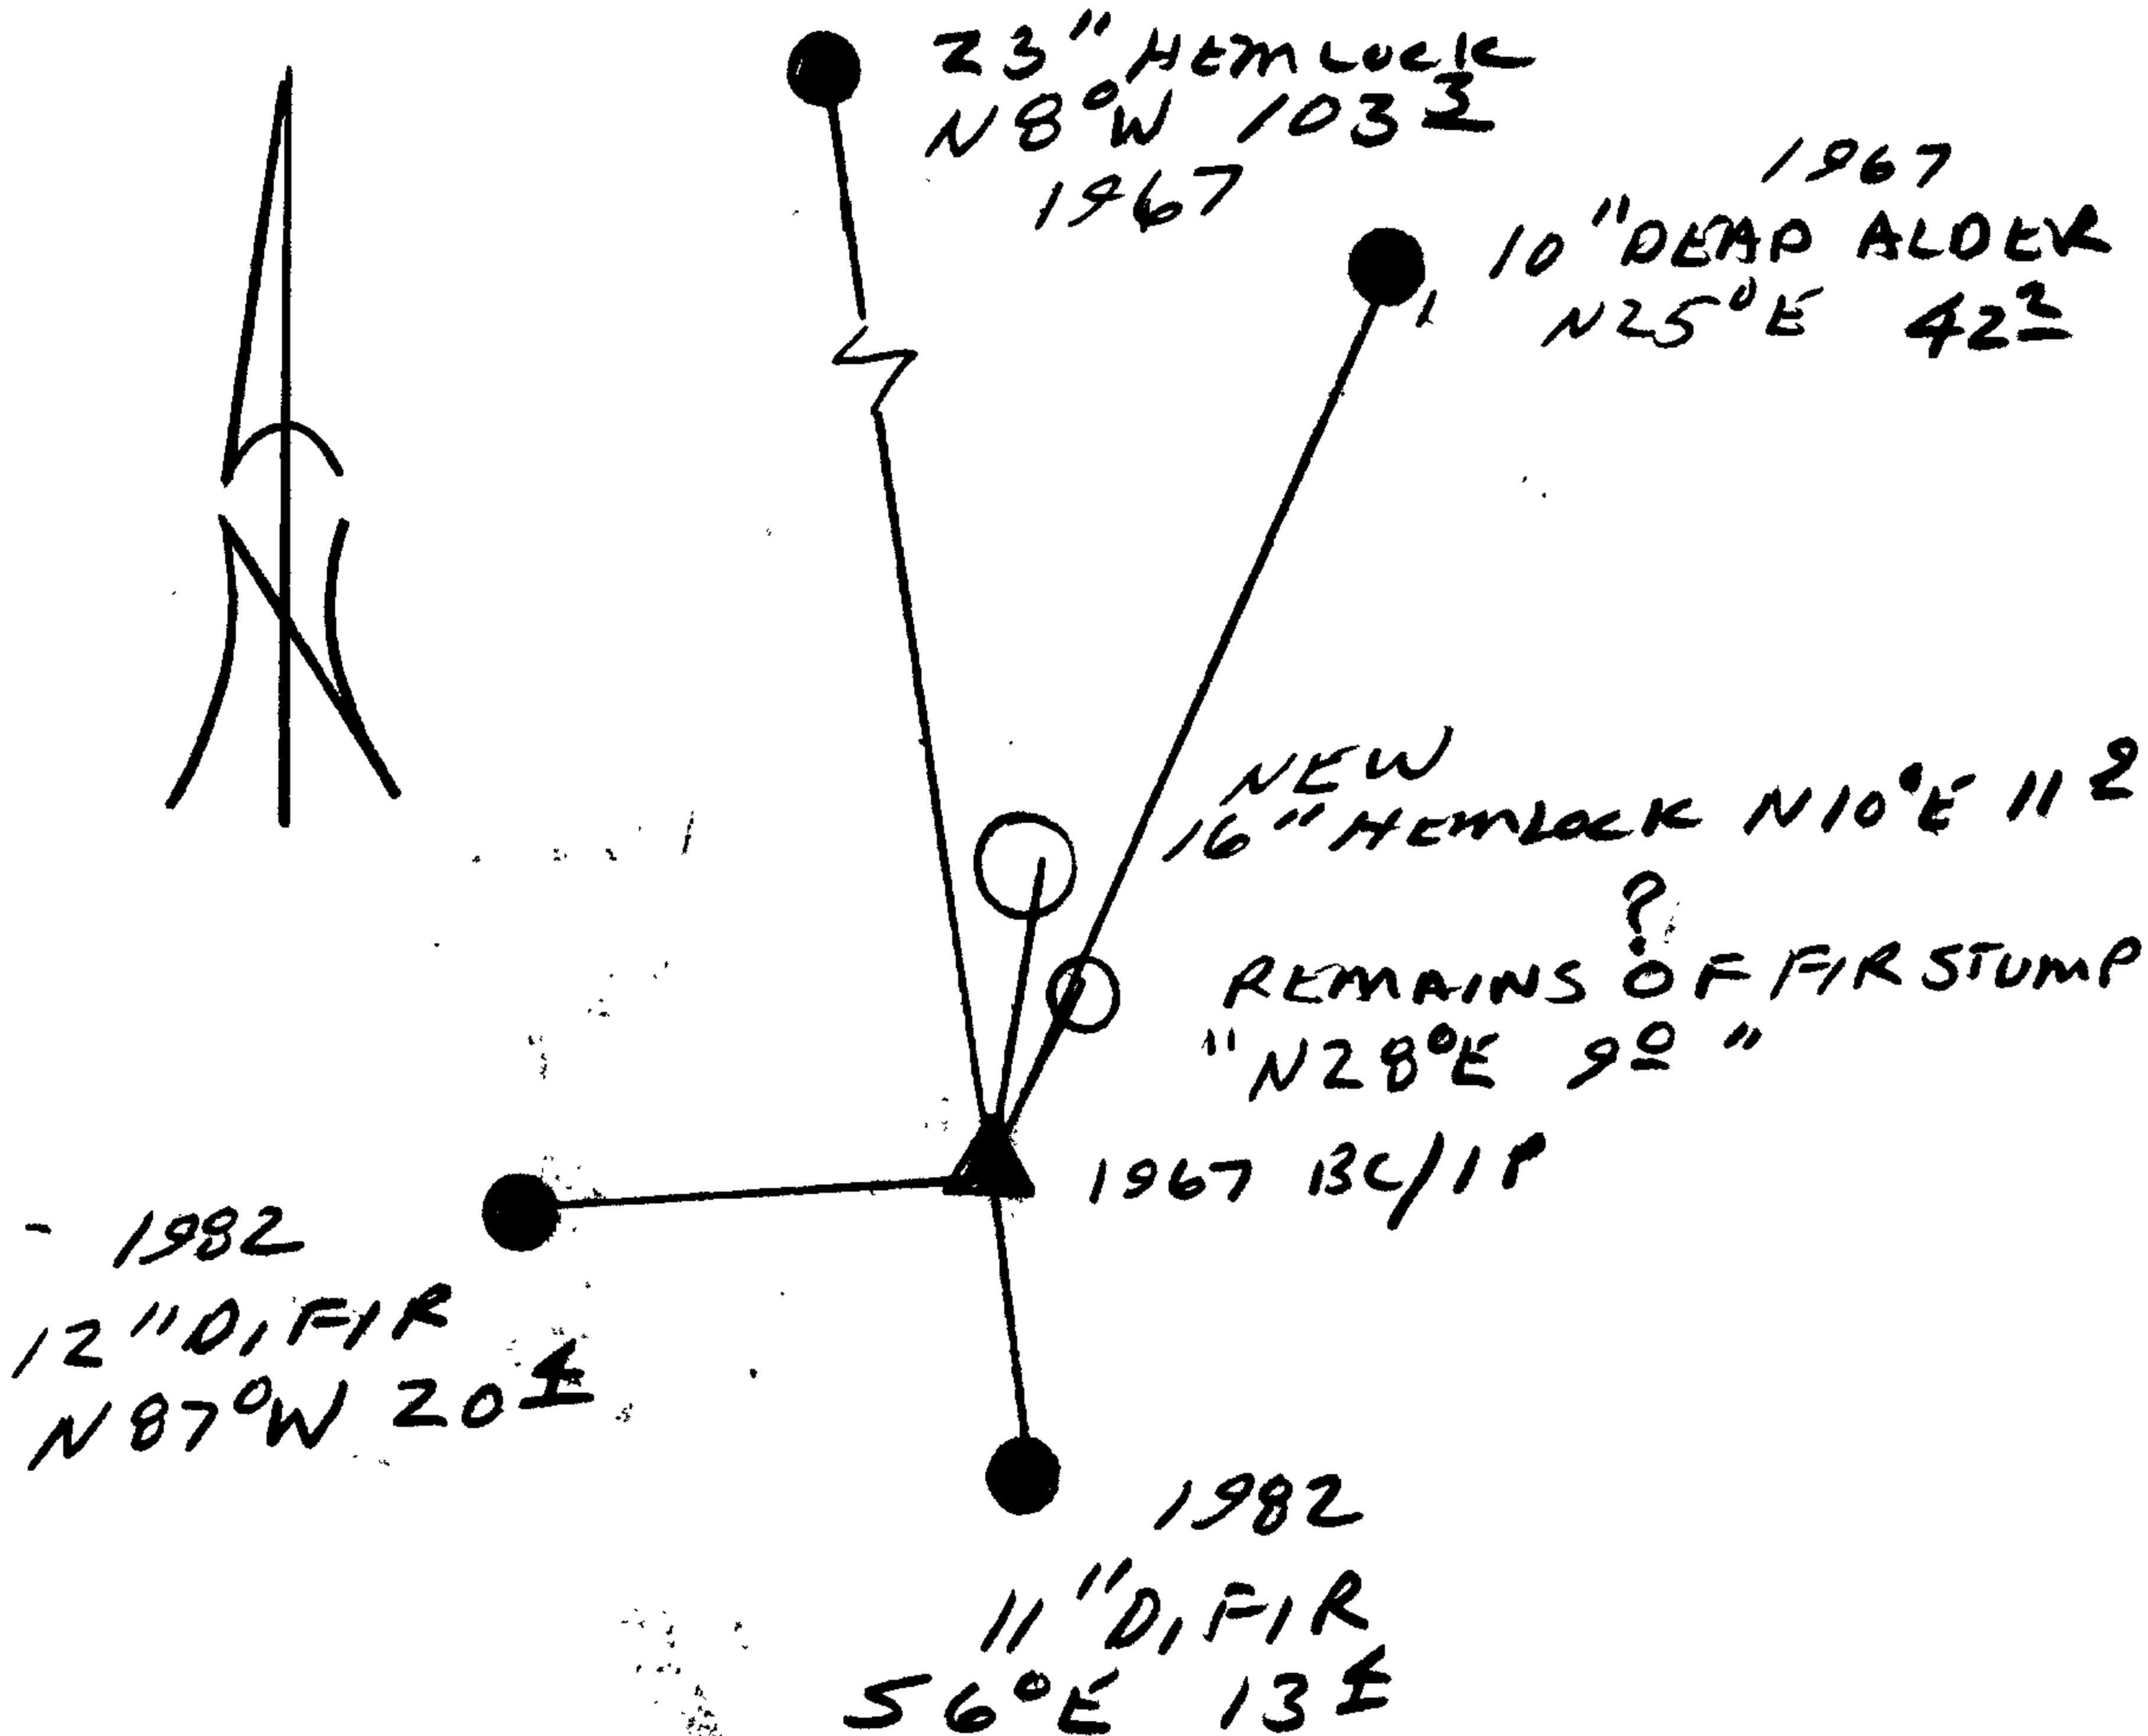 23" HEMLOCK
N8°W 103 3
1967
1967
10" DEAD ALDER
N25°E 42 2
N
NEW
16" HEMLOCK N10°E 11 2
?
REMAINS OF FIR STUMP
"N28°E 9 0"
1967 BC/IP
- 1982
12" D. FIR
N87°W 20
1982
11" D. FIR
S6°E 13